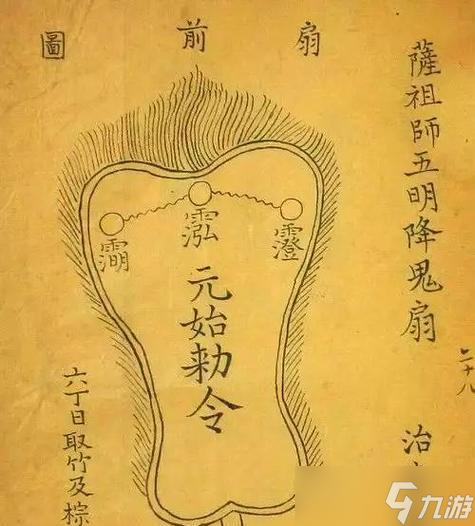 薩祖師五明降鬼扇
二十八
治
扇前圖
霐
元始勅令
六丁日取竹及棕
九游